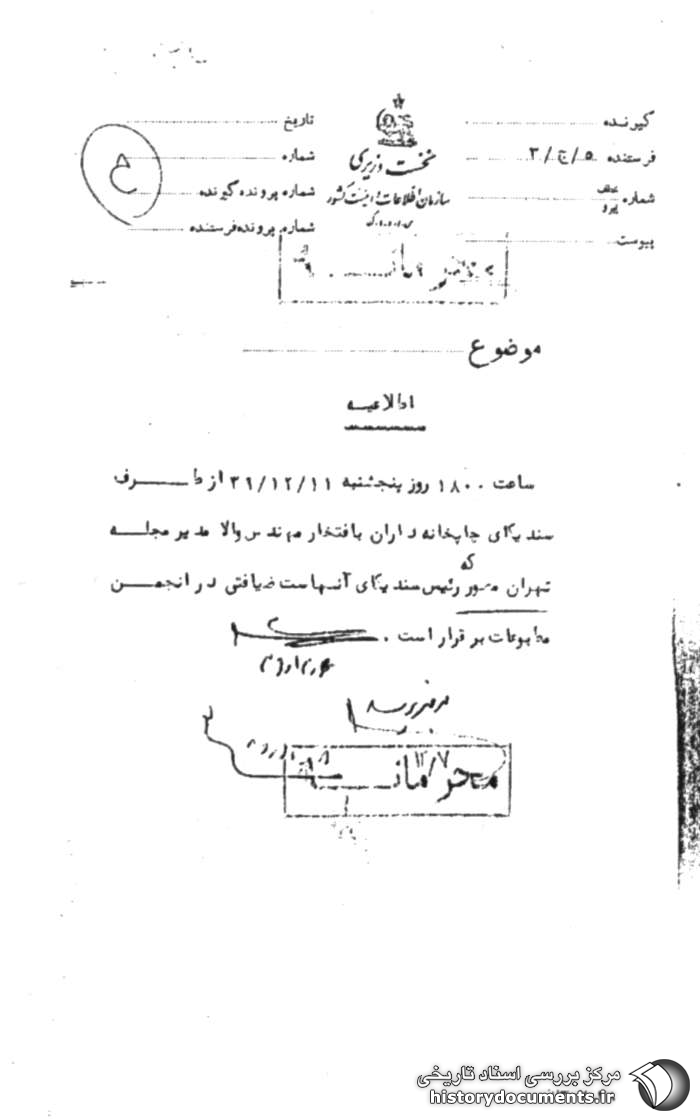 گیرنده
فرستنده ۵/ج/۳
شماره عطف پیرو
پیوست
نخست وزیری
سازمان اطلاعات و امنیت کشور
س.ا.و.ا.ک
تاریخ
شماره
شماره پرونده گیرنده
شماره پرونده فرستنده
محرمانه
موضوع
اطلاعیه
ساعت ۱۸۰۰ روز پنجشنبه ۳۹/۱۲/۱۱ از طرف
سندیکای چاپخانه داران بافتخار مهندس والا مدیر مجله
تهران مصور که رئیس سندیکای آنهاست ضیافتی در انجمن
مطبوعات برقرار است .
محرمانه
۱۲/۷
مرکز بررسی اسناد تاریخی
historydocuments.ir